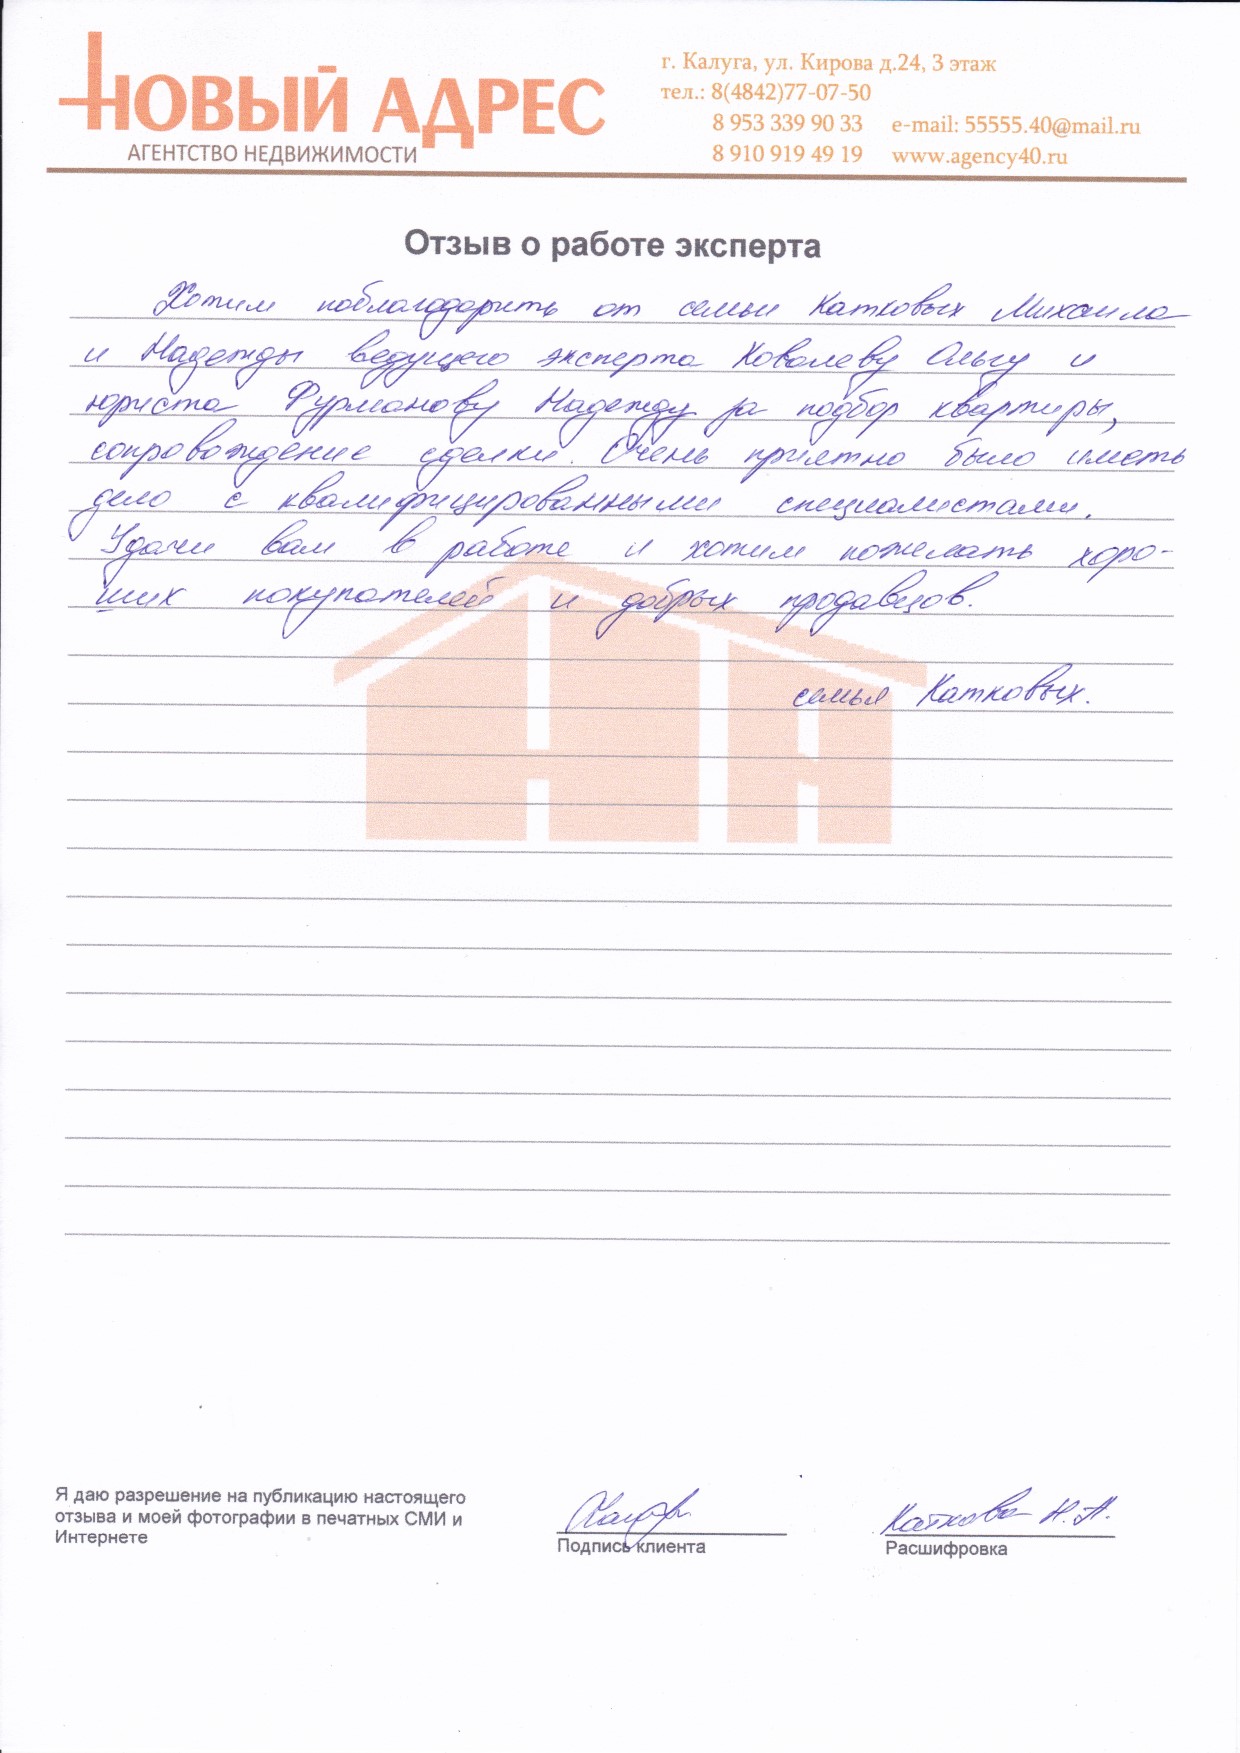 НОВЫЙ АДРЕС
АГЕНТСТВО НЕДВИЖИМОСТИ
г. Калуга, ул. Кирова д.24, 3 этаж
тел.: 8(4842)77-07-50
8 953 339 90 33 e-mail: 55555.40@mail.ru
8 910 919 49 19 www.agency40.ru
Отзыв о работе эксперта
Хотим поблагодарить от семьи Катковых Михаила
и Надежды ведущего эксперта Ковалеву Ольгу и
юриста Фурманову Надежду за подбор квартиры,
сопровождение сделки. Очень приятно было иметь
дело с квалифицированными специалистами.
Удачи вам в работе и хотим пожелать хоро-
ших покупателей и добрых продавцов.
семья Катковых.
Я даю разрешение на публикацию настоящего
отзыва и моей фотографии в печатных СМИ и
Интернете
Подпись клиента
Каткова Н.А.
Расшифровка